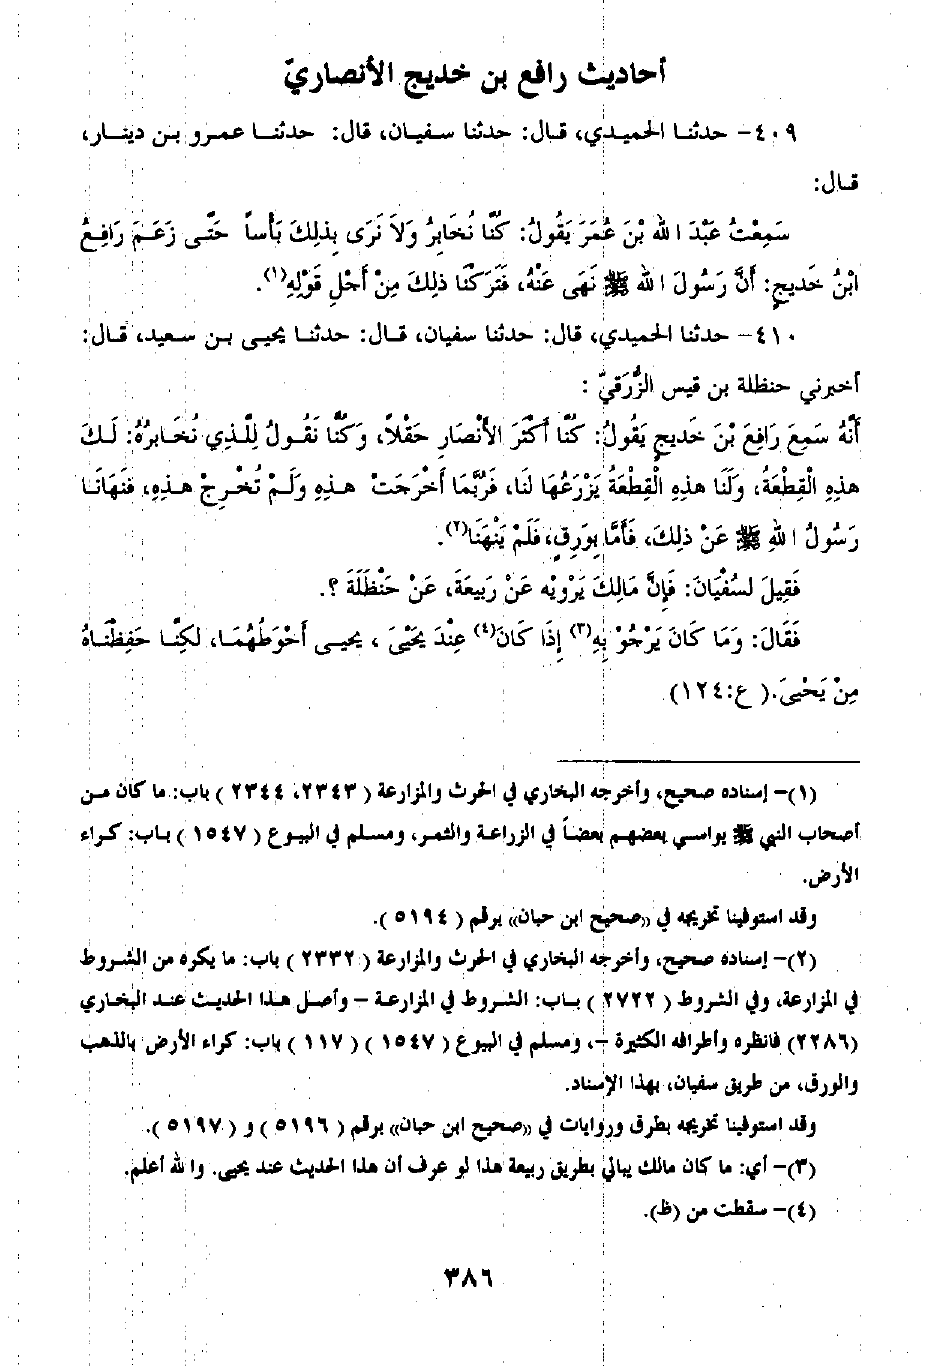 أحاديث رافع بن خديج الأنصاريّ
٤٠٩- حدثنا الحميدي، قال: حدثنا سفيان، قال: حدثنا عمرو بن دينار،
قال:
سَمِعْتُ عَبْدَ اللهِ بْنَ عُمَرَ يَقُولُ: كُنَّا نُخَابِرُ وَلاَ نَرَى بِذلِكَ بَأْساً حَتَّى زَعَمَ رَافِعُ
ابْنُ خَدِيجٍ: أَنَّ رَسُولَ اللهِ ﷺ نَهَى عَنْهُ، فَتَرَكْنَا ذلِكَ مِنْ أَجْلِ قَوْلِهِ(١).
٤١٠- حدثنا الحميدي، قال: حدثنا سفيان، قال: حدثنا يحيى بن سعيد، قال:
أخبرني حنظلة بن قيس الزُّرَقيّ :
أَنَّهُ سَمِعَ رَافِعَ بْنَ خَدِيجٍ يَقُولُ: كُنَّا أَكْثَرَ الأَنْصَارِ حَقْلاً، وَكُنَّا نَقُولُ لِلَّذِي نُخَابِرُهُ: لَكَ
هذِهِ الْقِطْعَةُ، وَلَنَا هذِهِ الْقِطْعَةُ يَزْرَعُهَا لَنَا، فَرُبَّمَا أَخْرَجَتْ هذِهِ وَلَمْ تُخْرِجْ هذِهِ، فَنَهَانَا
رَسُولُ اللهِ ﷺ عَنْ ذلِكَ، فَأَمَّا بِوَرِقٍ، فَلَمْ يَنْهَنَا(٢).
فَقِيلَ لسُفْيَانَ: فَإِنَّ مَالِكَ يَرْوِيْه عَنْ رَبِيعَةَ، عَنْ حَنْظَلَةَ ؟.
فَقَالَ: وَمَا كَانَ يَرْجُوْ بِهِ(٣) إِذَا كَانَ(٤) عِنْدَ يَحْيَىَ ، يحيى أَحْوَطُهُمَا، لكِنَّا حَفِظْنَاهُ
مِنْ يَحْيىَ.( ع:١٢٤)
(١)- إسناده صحيح، وأخرجه البخاري في الحرث والمزارعة ( ٢٣٤٣، ٢٣٤٤ ) باب: ما كان من
أصحاب النبي ﷺ يواسي بعضهم بعضاً في الزراعة والثمر، ومسلم في البيوع ( ١٥٤٧ ) باب: كراء
الأرض.
وقد استوفينا تخريجه في «صحيح ابن حبان» برقم ( ٥١٩٤ ).
(٢)- إسناده صحيح، وأخرجه البخاري في الحرث والمزارعة ( ٢٣٣٢ ) باب: ما يكره من الشروط
في المزارعة، وفي الشروط ( ٢٧٢٢ ) باب: الشروط في المزارعة – وأصل هذا الحديث عند البخاري
(٢٢٨٦) فانظره وأطرافه الكثيرة –، ومسلم في البيوع ( ١٥٤٧ ) ( ١١٧ ) باب: كراء الأرض بالذهب
والورق، من طريق سفيان، بهذا الإسناد.
وقد استوفينا تخريجه بطرق وروايات في «صحيح ابن حبان» برقم ( ٥١٩٦ ) و ( ٥١٩٧ ).
(٣)- أي: ما كان مالك يبالي بطريق ربيعة هذا لو عرف أن هذا الحديث عند يحيى. والله أعلم.
(٤)- سقطت من (ظ).
٣٨٦